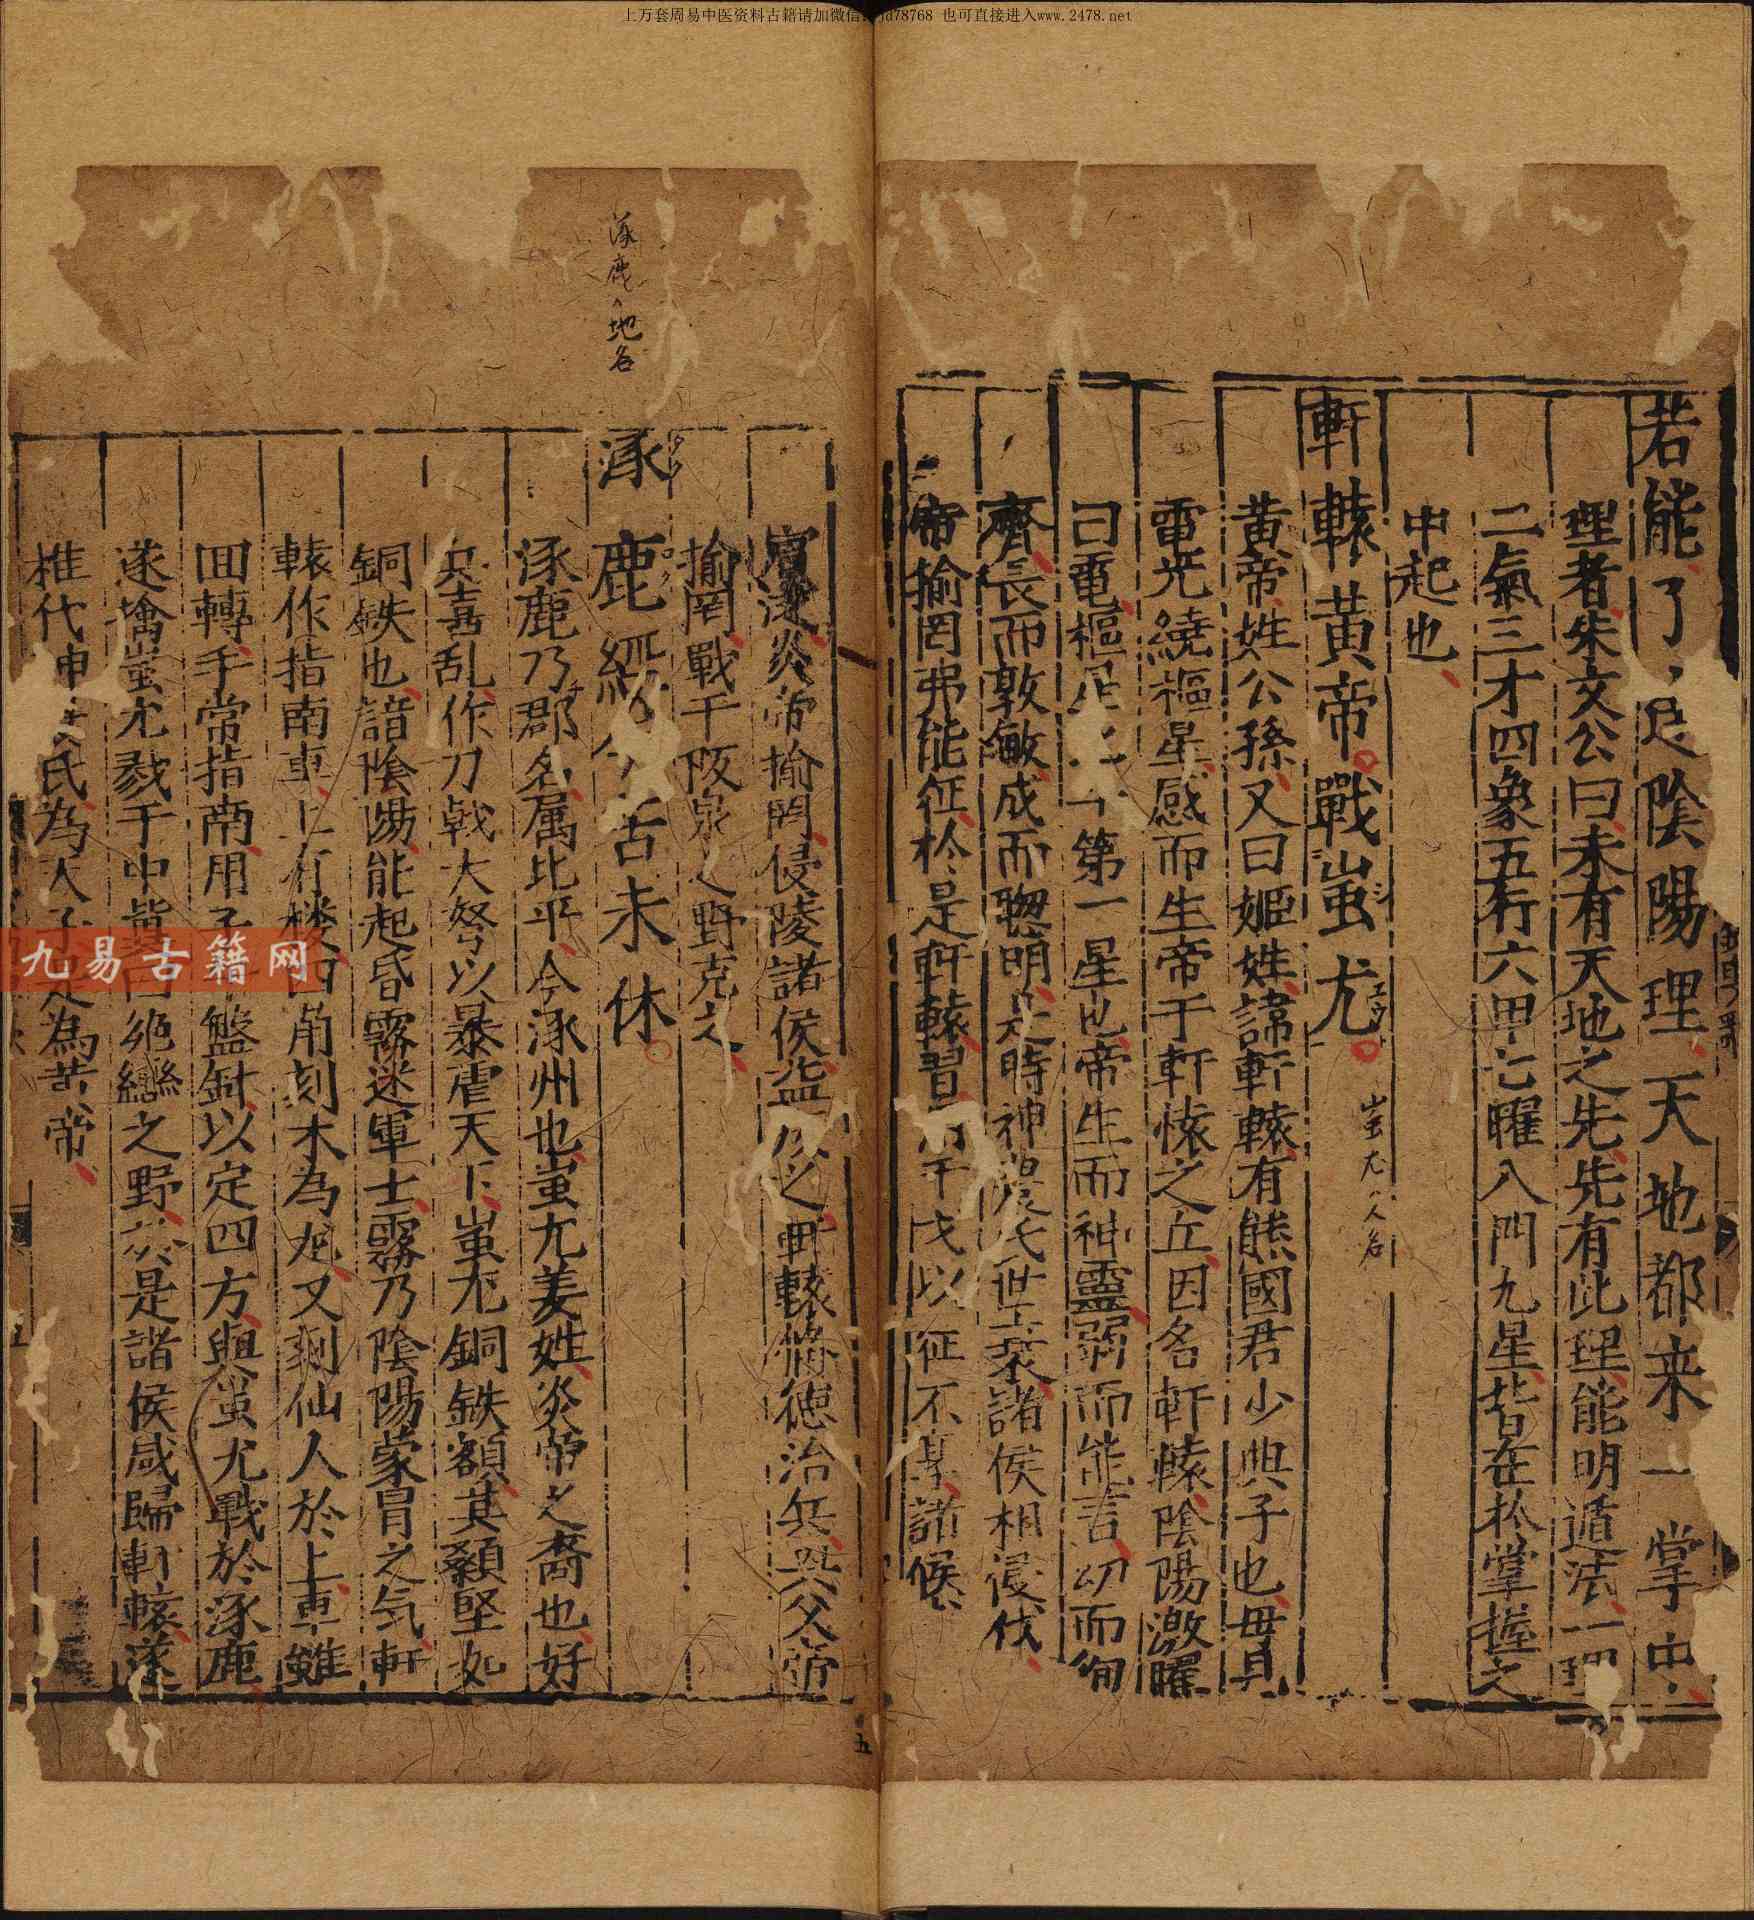 上万套周易中医资料古籍请加微信:djd78768 也可直接进入www.2478.net
若能了忌陰陽理天地都来一掌中
理者朱文公曰未有天地之先先有此理能明遁法一理
二氣三才四象五行六甲七曜八門九星皆在於掌握之
中起也
軒轅黃帝戰蚩尤
蚩尤人名
黃帝姓公孫又曰姬姓諱軒轅有熊國君少典子也母見
電光繞樞星感而生帝于軒轅之丘因名軒轅陰陽激曜
曰電樞是 第一星也帝生而神靈弱而能言幼而徇
齊長而敦敏成而聰明是時神農氏世衰諸侯相侵伐
帝揄罔弗能征於是軒轅習 干戈以征不享諸侯
賓從炎帝揄罔侵陵諸侯益 之軒轅修德治兵與炎帝
揄罔戰于阪泉之野克之
涿鹿、地名
涿鹿經 今苦未休
涿鹿乃郡名属北平今涿州也蚩尤姜姓炎帝之裔也好
兵喜乱作刀戟大弩以暴虐天下蚩尤銅鉄額其顙堅如
銅鉄也諳陰陽能起昏霧迷軍士霧乃陰陽蒙冒之气軒
轅作指南車上有楼四角刻木為龙又刻仙人於上車雖
囬轉手常指南用子 盤針以定四方與蚩尤戰於涿鹿
遂擒蚩尤戮于中冀 絕轡之野於是諸侯咸歸軒轅遂
推代神農氏為天子是為黃帝
九易古籍网
五